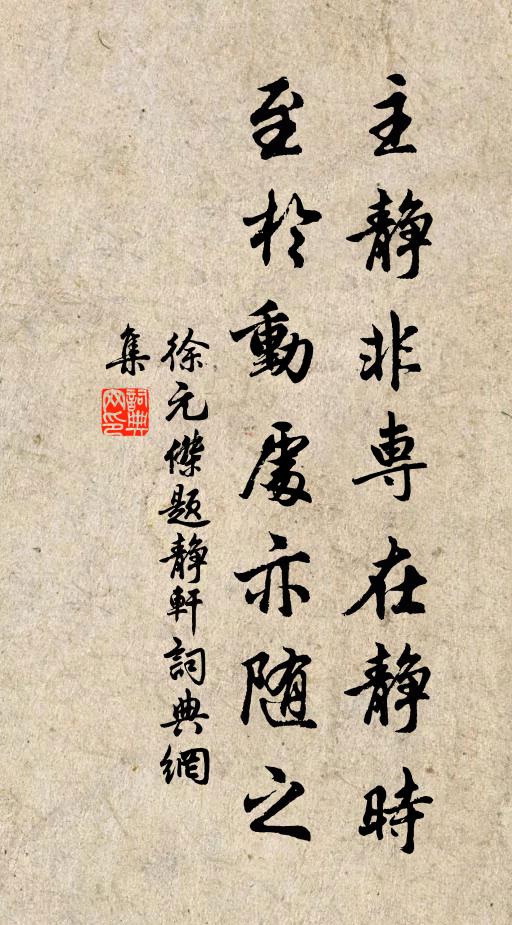 主静非専在静時
至於動處亦随之
徐元傑題静軒詞典網
集
詞典網印